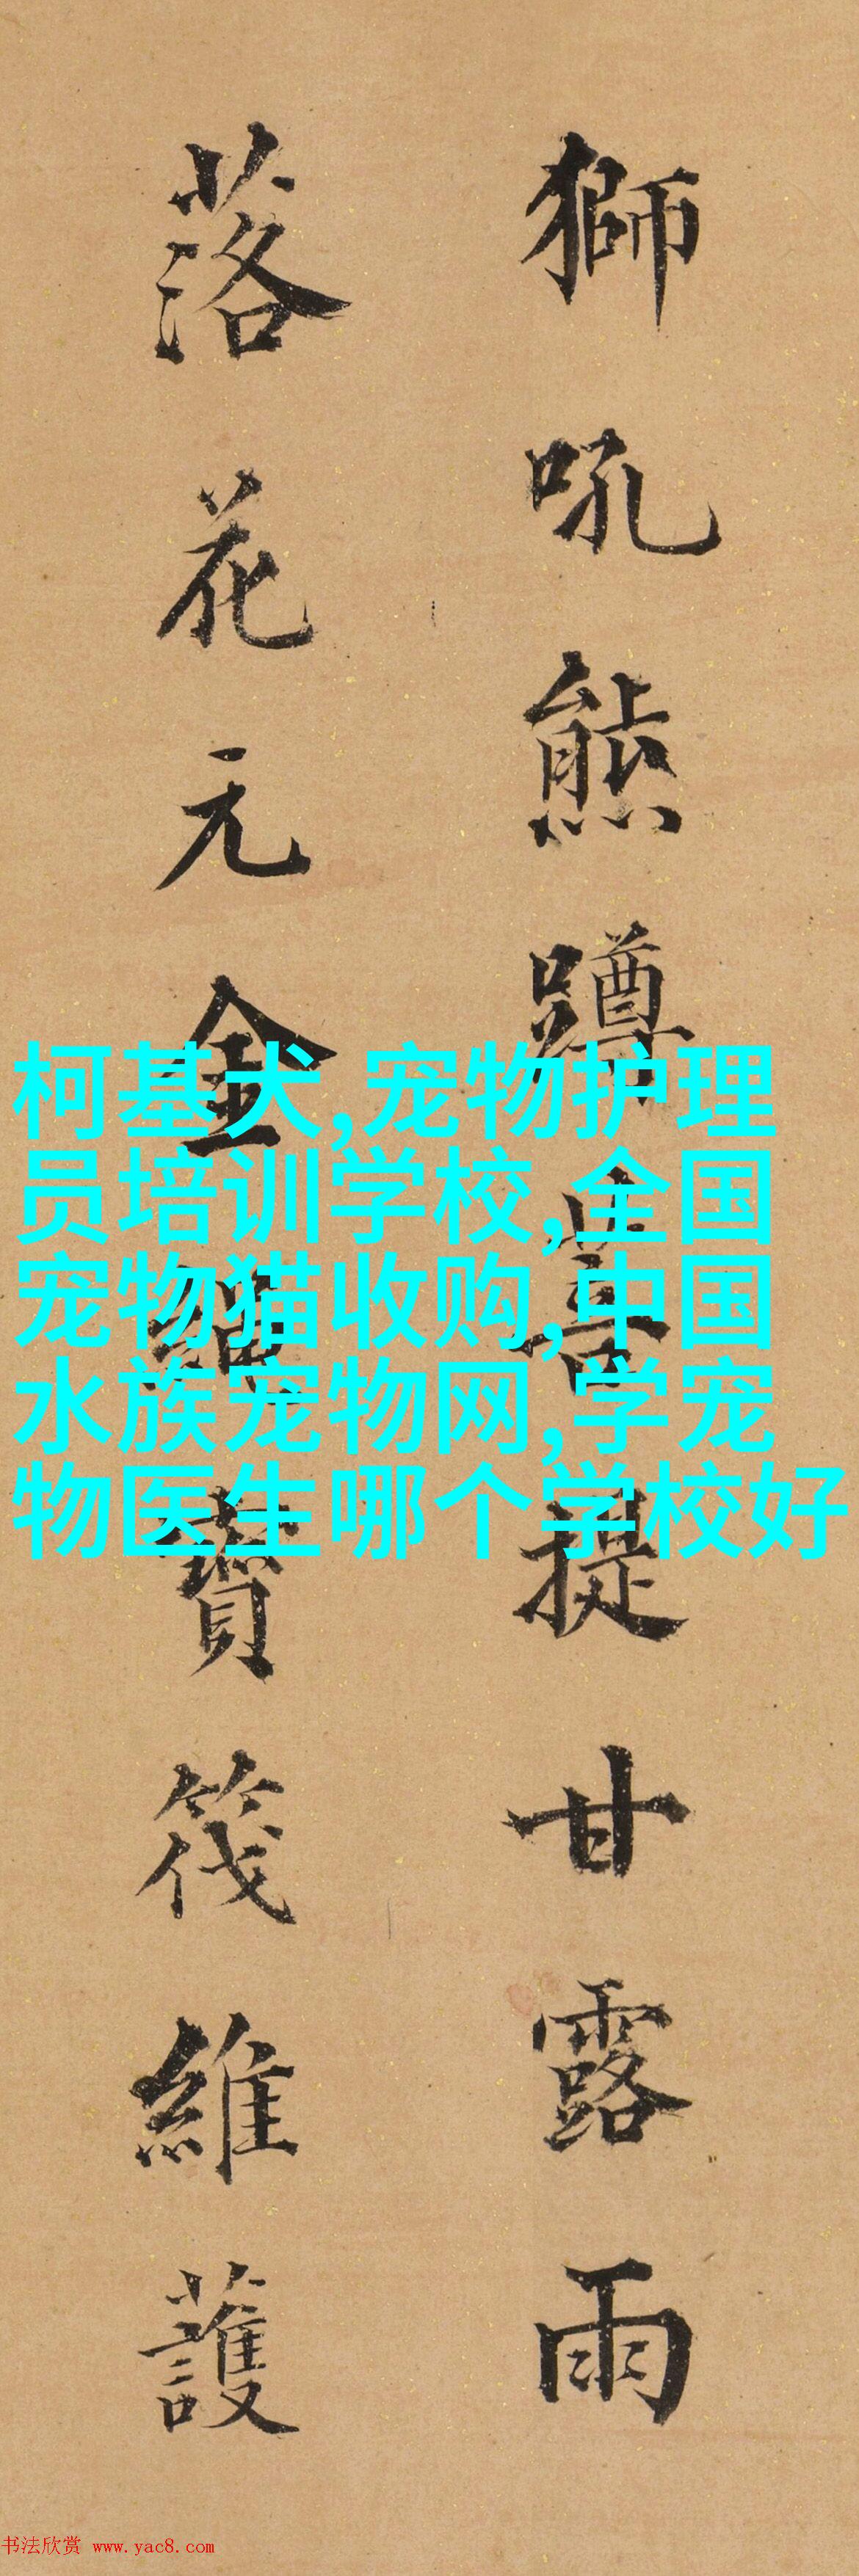 獅吼熊蹲菩提甘露雨
落花元金繩寶筏維護
柯基犬,宠物护理
员培训学校,全国
宠物猫收购,中国
水族宠物网,学宠
物医生哪个学校好
书法欣赏 www.yac8.com